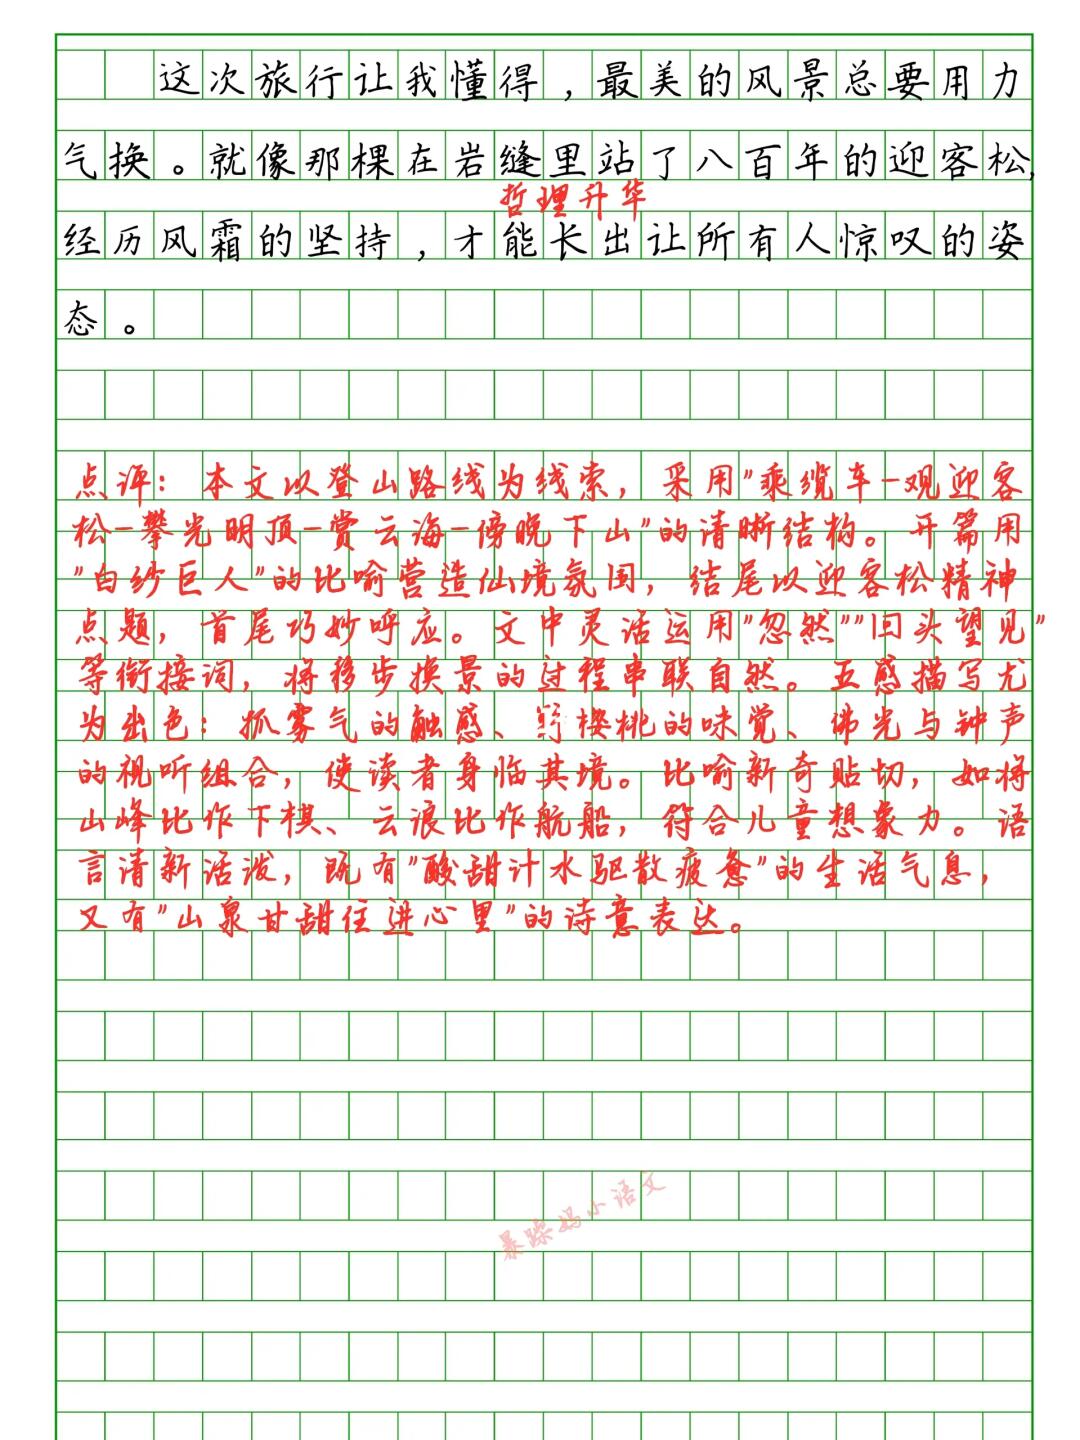 这次旅行让我懂得，最美的风景总要用力
气换。就像那棵在岩缝里站了八百年的迎客松，
哲理升华
经历风霜的坚持，才能长出让所有人惊叹的姿
态。
点评：本文以登山路线为线索，采用"乘缆车-观迎客
松-攀光明顶-赏云海-傍晚下山"的清晰结构。开篇用
"白纱巨人"的比喻营造仙境氛围，结尾以迎客松精神
点题，首尾巧妙呼应。文中灵活运用"忽然""回头望见"
等衔接词，将移步换景的过程串联自然。五感描写尤
为出色：抓雾气的触感、野樱桃的味觉、佛光与钟声
的视听组合，使读者身临其境。比喻新奇贴切，如将
山峰比作下棋、云浪比作航船，符合儿童想象力。语
言清新活泼，既有"酸甜汁水驱散疲惫"的生活气息，
又有"山泉甘甜住进心里"的诗意表达。
暴躁妈小语文